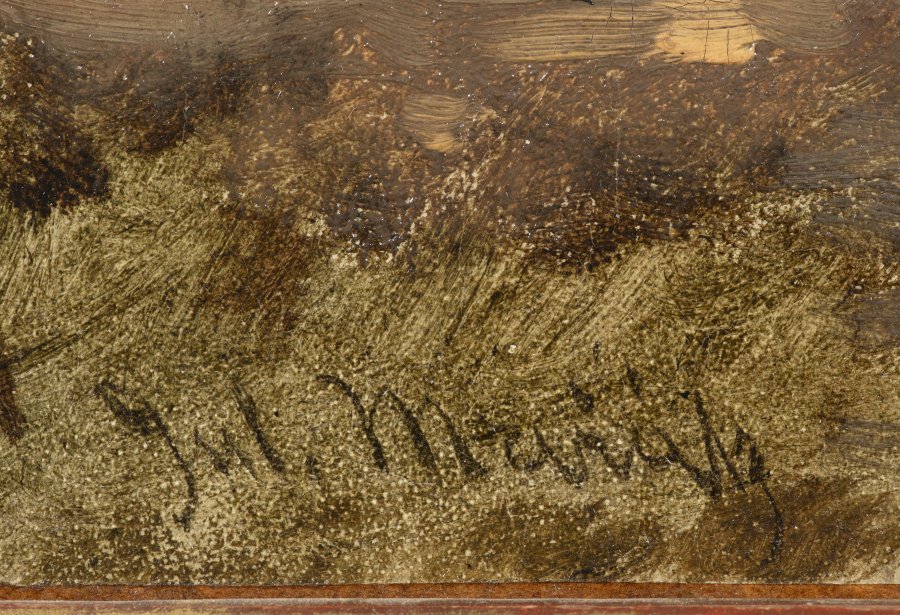 Jul. Mařák